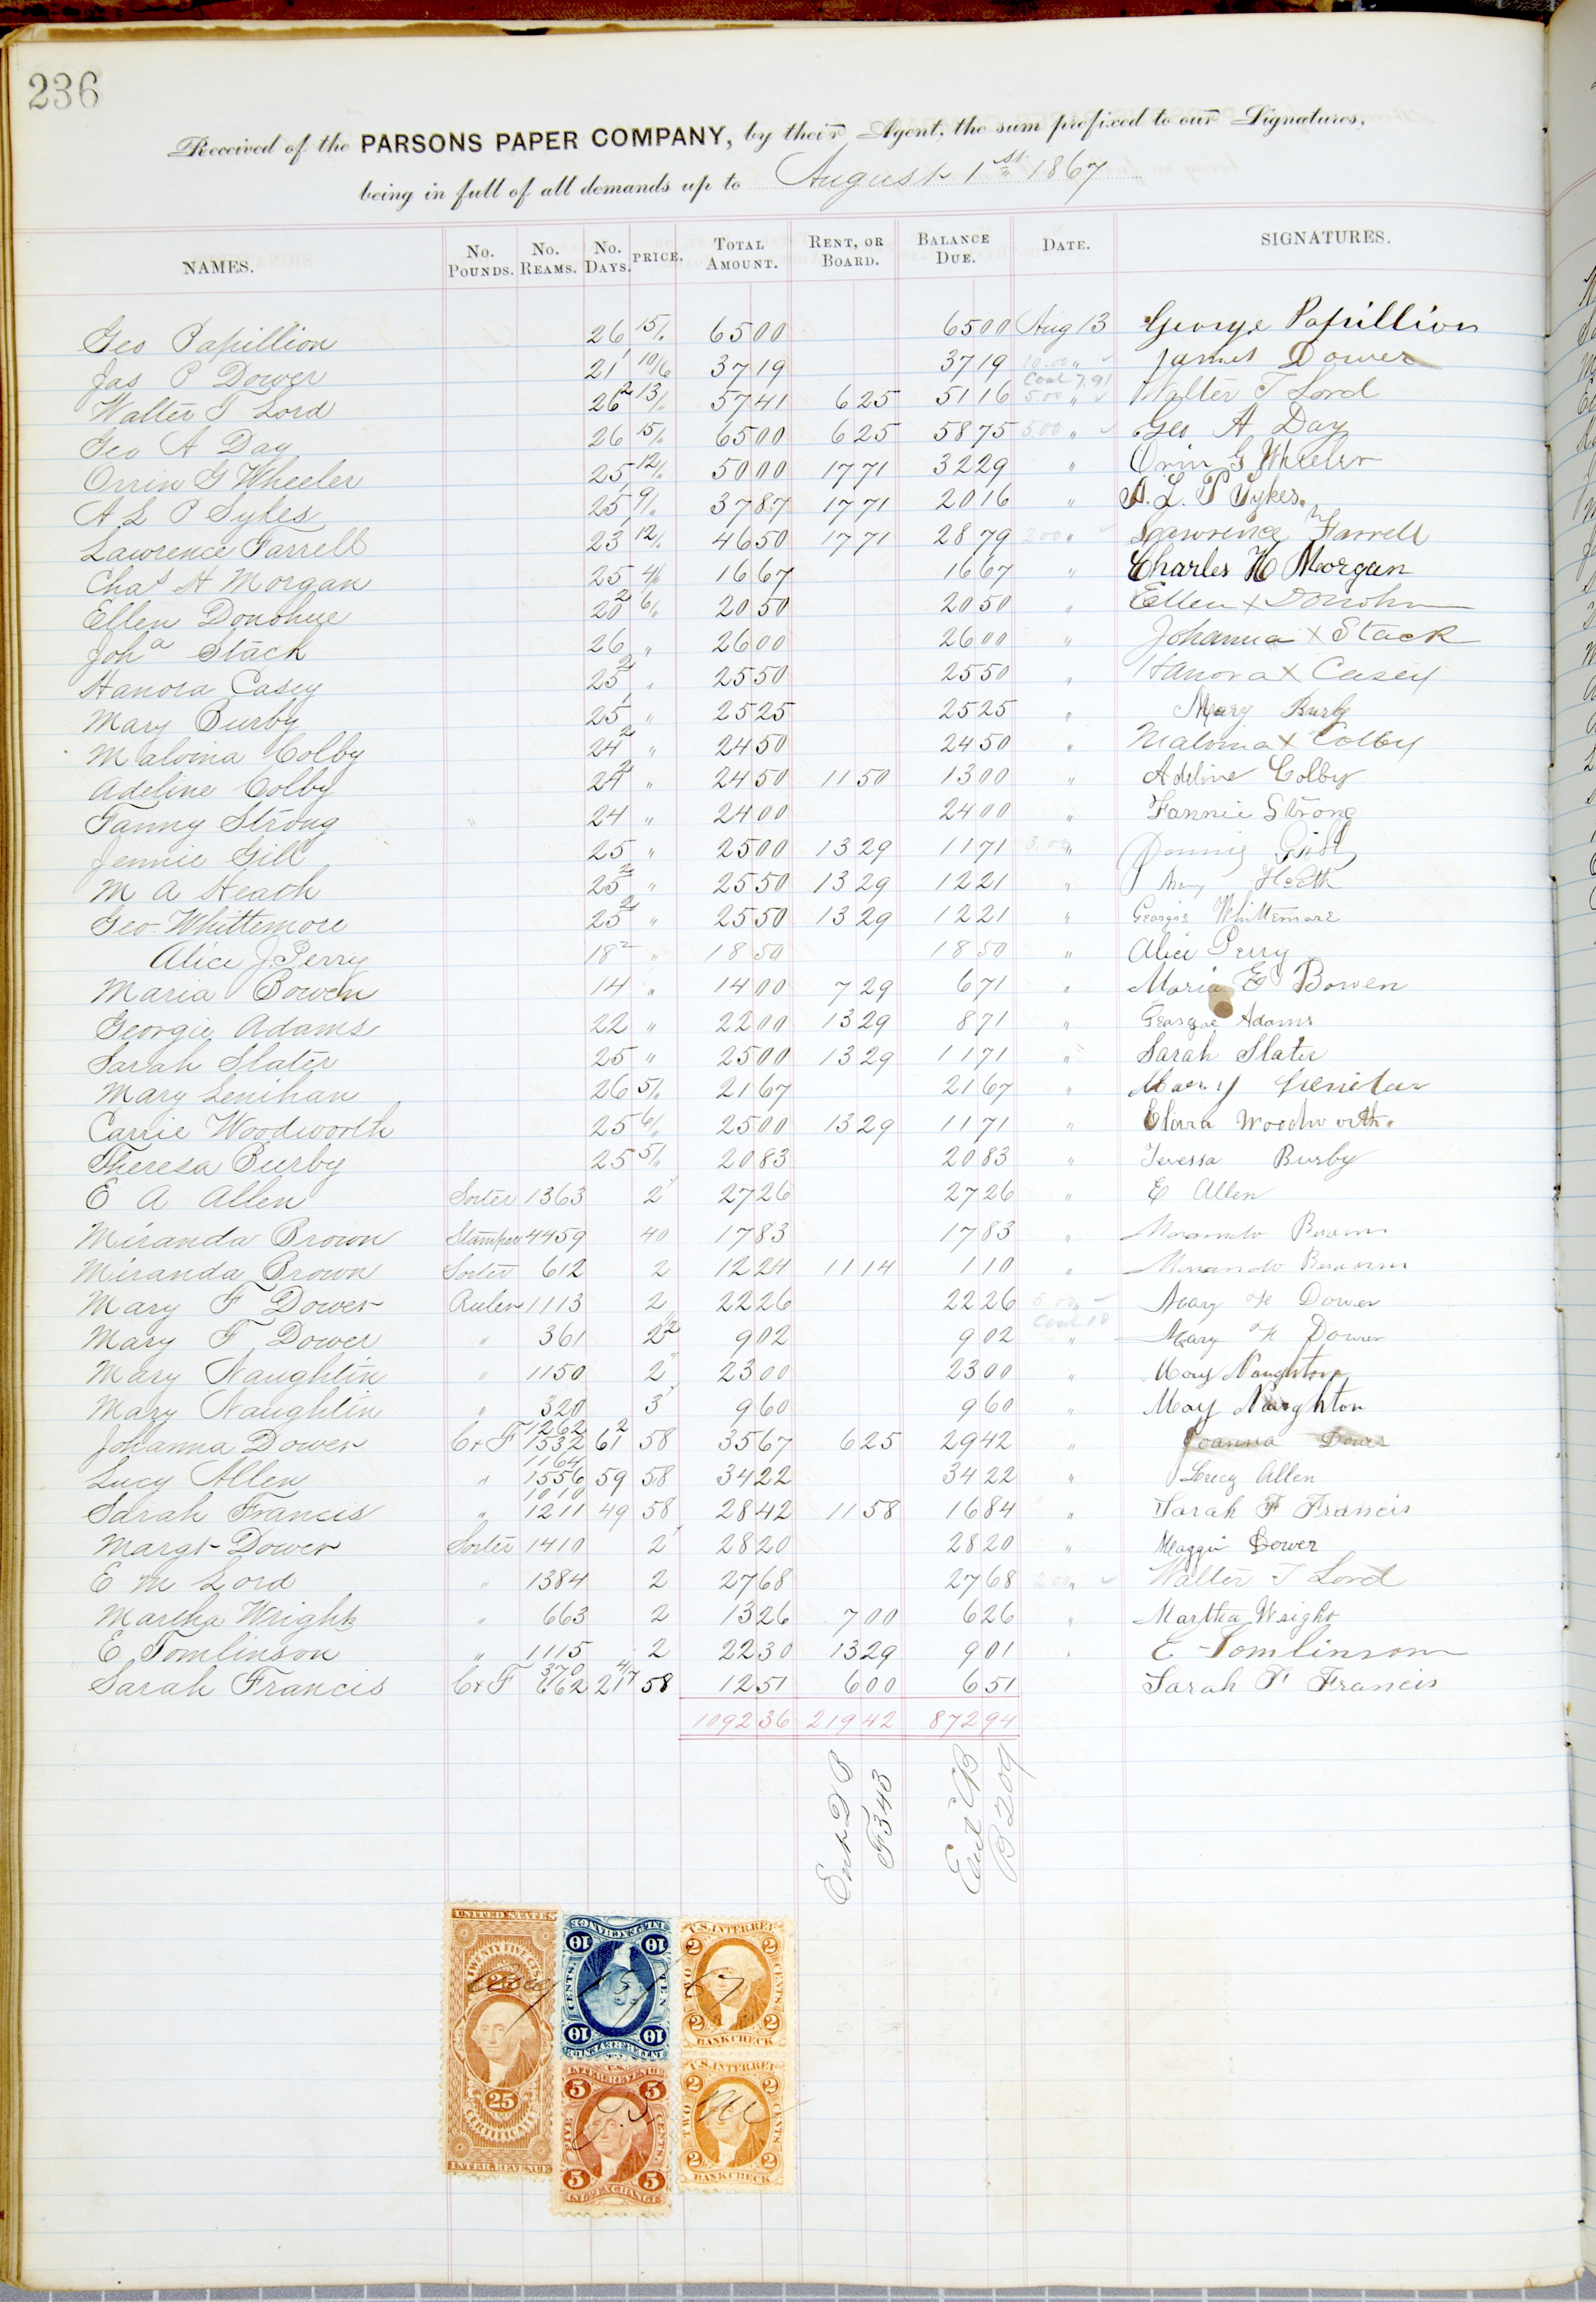 236
Received of the PARSONS PAPER COMPANY, by their Agent, the sum prefixed to our Signatures,
being in full of all demands up to August 1st 1867
NAMES. No. Pounds. No. Reams. No. Days. PRICE. Total Amount. Rent, or Board. Balance Due. Date. SIGNATURES.
Geo Papillion 26 15/. 6500 6500 Aug 13 George Papillion
Jas P Dower 21 1 10/6 3719 3719 10.00 " James Dower
Cont 7.91
Walter T Lord 26 2 13/. 5741 625 5116 5.00 " Walter T Lord
Geo A Day 26 15/. 6500 625 5875 5.00 " Geo A Day
Orrin G Wheeler 25 12/. 5000 1771 3229 " Orrin G Wheeler
A L P Sykes 25 1 9/. 3787 1771 2016 " A. L. P Sykes.
Lawrence Farrell 23 1 12/. 4650 1771 2879 2.00 " Lawrence Farrell
Chas H Morgan 25 4/. 1667 1667 " Charles H Morgan
Ellen Donohue 20 2 6/. 2050 2050 " Ellen x Donohu
Joha Stack 26 " 2600 2600 " Johanna x Stack
Hanora Casey 25 2 " 2550 2550 " Hanora x Casey
Mary Burby 25 1 " 2525 2525 " Mary Burby
Malvina Colby 24 2 " 2450 2450 " Malvina x Colby
Adeline Colby 24 2 " 2450 1150 1300 " Adeline Colby
Fanny Strong 24 " 2400 2400 " Fannie Strong
Jennie Gill 25 " 2500 1329 1171 3.00 " Jennie Gill
M A Heath 25 2 " 2550 1329 1221 " Heath
Geo. Whittemore 25 2 " 2550 1329 1221 " Georgie Whittemore
Alice J. Perry 18 2 " 1850 1850 " Alice Perry
Maria Bowen 14 " 1400 729 671 " Maria E Bowen
Georgie Adams 22 " 2200 1329 871 " Georgie Adams
Sarah Slater 25 " 2500 1329 1171 " Sarah Slater
Mary Lenihan 26 5/. 2167 2167 " Mary
Carrie Woodworth 25 6/. 2500 1329 1171 " Clara Woodworth.
Theresa Burby 25 5/. 2083 2083 " Teressa Burby
E A Allen Sorter 1363 2 2726 2726 " E Allen
Miranda Brown Stamper 4459 40 1783 1783 " Brown
Miranda Brown Sorter 612 2 1224 1114 110 " Brown
Mary F Dower Ruler 1113 2 2226 2226 5.00 " Mary F Dower
Cont 10
Mary F Dower " 361 2 1/2 902 902 " Mary F Dower
Mary Naughtin " 1150 2 2300 2300 " Mary Naughton
Mary Naughtin " 320 3 960 960 " May Naughton
Johanna Dower C & F 1262 1532 61 2 58 3567 625 2942 " Joanna Dower
Lucy Allen " 1164 1556 59 58 3422 3422 " Lucy Allen
Sarah Francis " 1010 1211 49 58 2842 1158 1684 " Sarah F Francis
Margt Dower Sorter 1410 2 2820 2820 " Maggie Dower
E M Lord " 1384 2 2768 2768 2.00 " Walter T Lord
Martha Wright " 663 2 1326 700 626 " Martha Wright
E Tomlinson " 1115 2 2230 1329 901 " E Tomlinson
Sarah Francis C & F 370 662 21 4/7 58 1251 600 651 Sarah F Francis
109236 21942 87294
Ent D B
F 343
Ent CB
B 209
UNITED STATES
TWENTY FIVE CTS
25
25
CERTIFICATE
INTER. REVENUE
U.S. INTER. REVENUE
10 TEN CENTS 10
INL. EXCHANGE
U.S. INTER. REV.
2 TWO CENTS 2
BANK CHECK
Aug 13/67
U.S. INTER. REVENUE
5 FIVE CENTS 5
INL. EXCHANGE
U.S. INTER. REV.
2 TWO CENTS 2
BANK CHECK